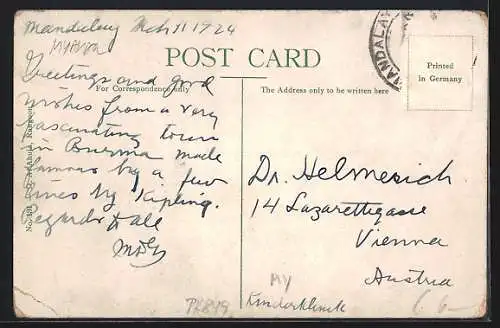 Mandalay Mch 11 1924
Myanmar
POST CARD
For Correspondence only
The Address only to be written here
Printed
in Germany
MANDALAY
Greetings and good
wishes from a very
fascinating town
in Burma made
famous by a few
lines by Kipling.
Regards to all
Dr. Helmreich
14 Lazarettgasse
Vienna
Austria
MY
Kinderklinik
PK849